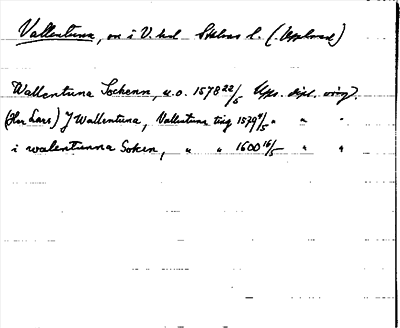 Vallentuna, sn i V. hd Sthlms l. (Uppland)
Wallentuna Sochenn, u.o. 1578 22/5 Upps. dipl. övrigt.
(Her Lars) J Wallentuna, Vallentuna ting 1579 4/5 " " "
i walentunna Soken, " " 1600 16/5 " "